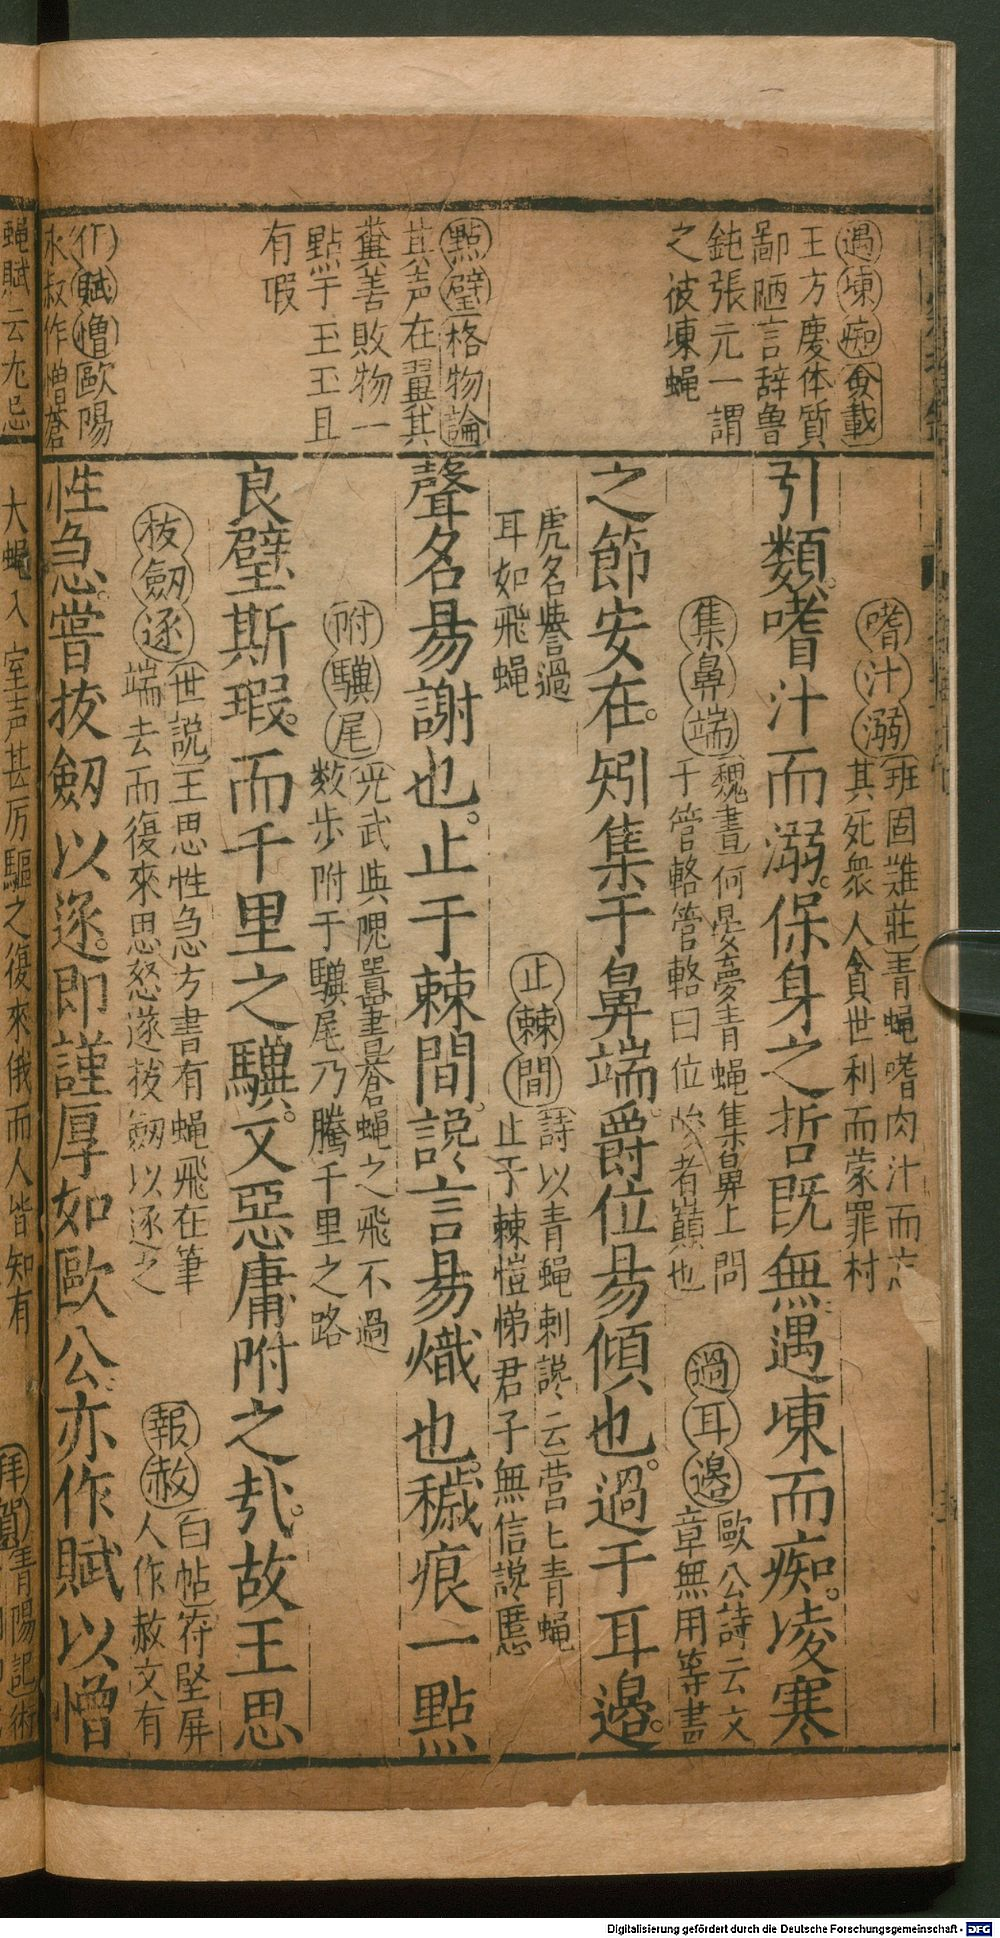 遇堜痴僉載
王方慶体質
鄙陋言辞魯
鈍張元一謂
之彼堜蝇
點璧格物論
其声在翼其
糞善敗物一
點于玉玉且
有瑕
作賦憎歐陽
永叔作憎蒼
蝇賦云尤忌
嗜汁溺班固難莊青蝇嗜肉汁而忘
其死衆人貪世利而蒙罪村
引類嗜汁而溺保身之哲既無遇堜而痴凌寒
集鼻端魏書何晏夢青蝇集鼻上問
于管輅管輅曰位峻者巔也
過耳邊歐公詩云文
章無用等畫
之節安在矧集于鼻端爵位易傾也過于耳邊
虎名譽過
耳如飛蝇
止棘間詩以青蝇刺讒云营匕青蝇
止于棘愷悌君子無信讒慝
聲名易謝也止于棘間讒言易熾也穢痕一點
附驥尾光武與隗囂書蒼蝇之飛不過
数步附于驥尾乃騰千里之路
良璧斯瑕而千里之驥又惡庸附之㢤故王思
拔劒逐世説王思性急方書有蝇飛在筆
端去而復來思怒遂拔劒以逐之
報赦白帖苻堅屏
人作赦文有
性急嘗拔劒以逐即謹厚如歐公亦作賦以憎
大蝇入室声甚厉驅之復來俄而人皆知有
拜賀青陽記術
Digitalisierung gefördert durch die Deutsche Forschungsgemeinschaft - DFG